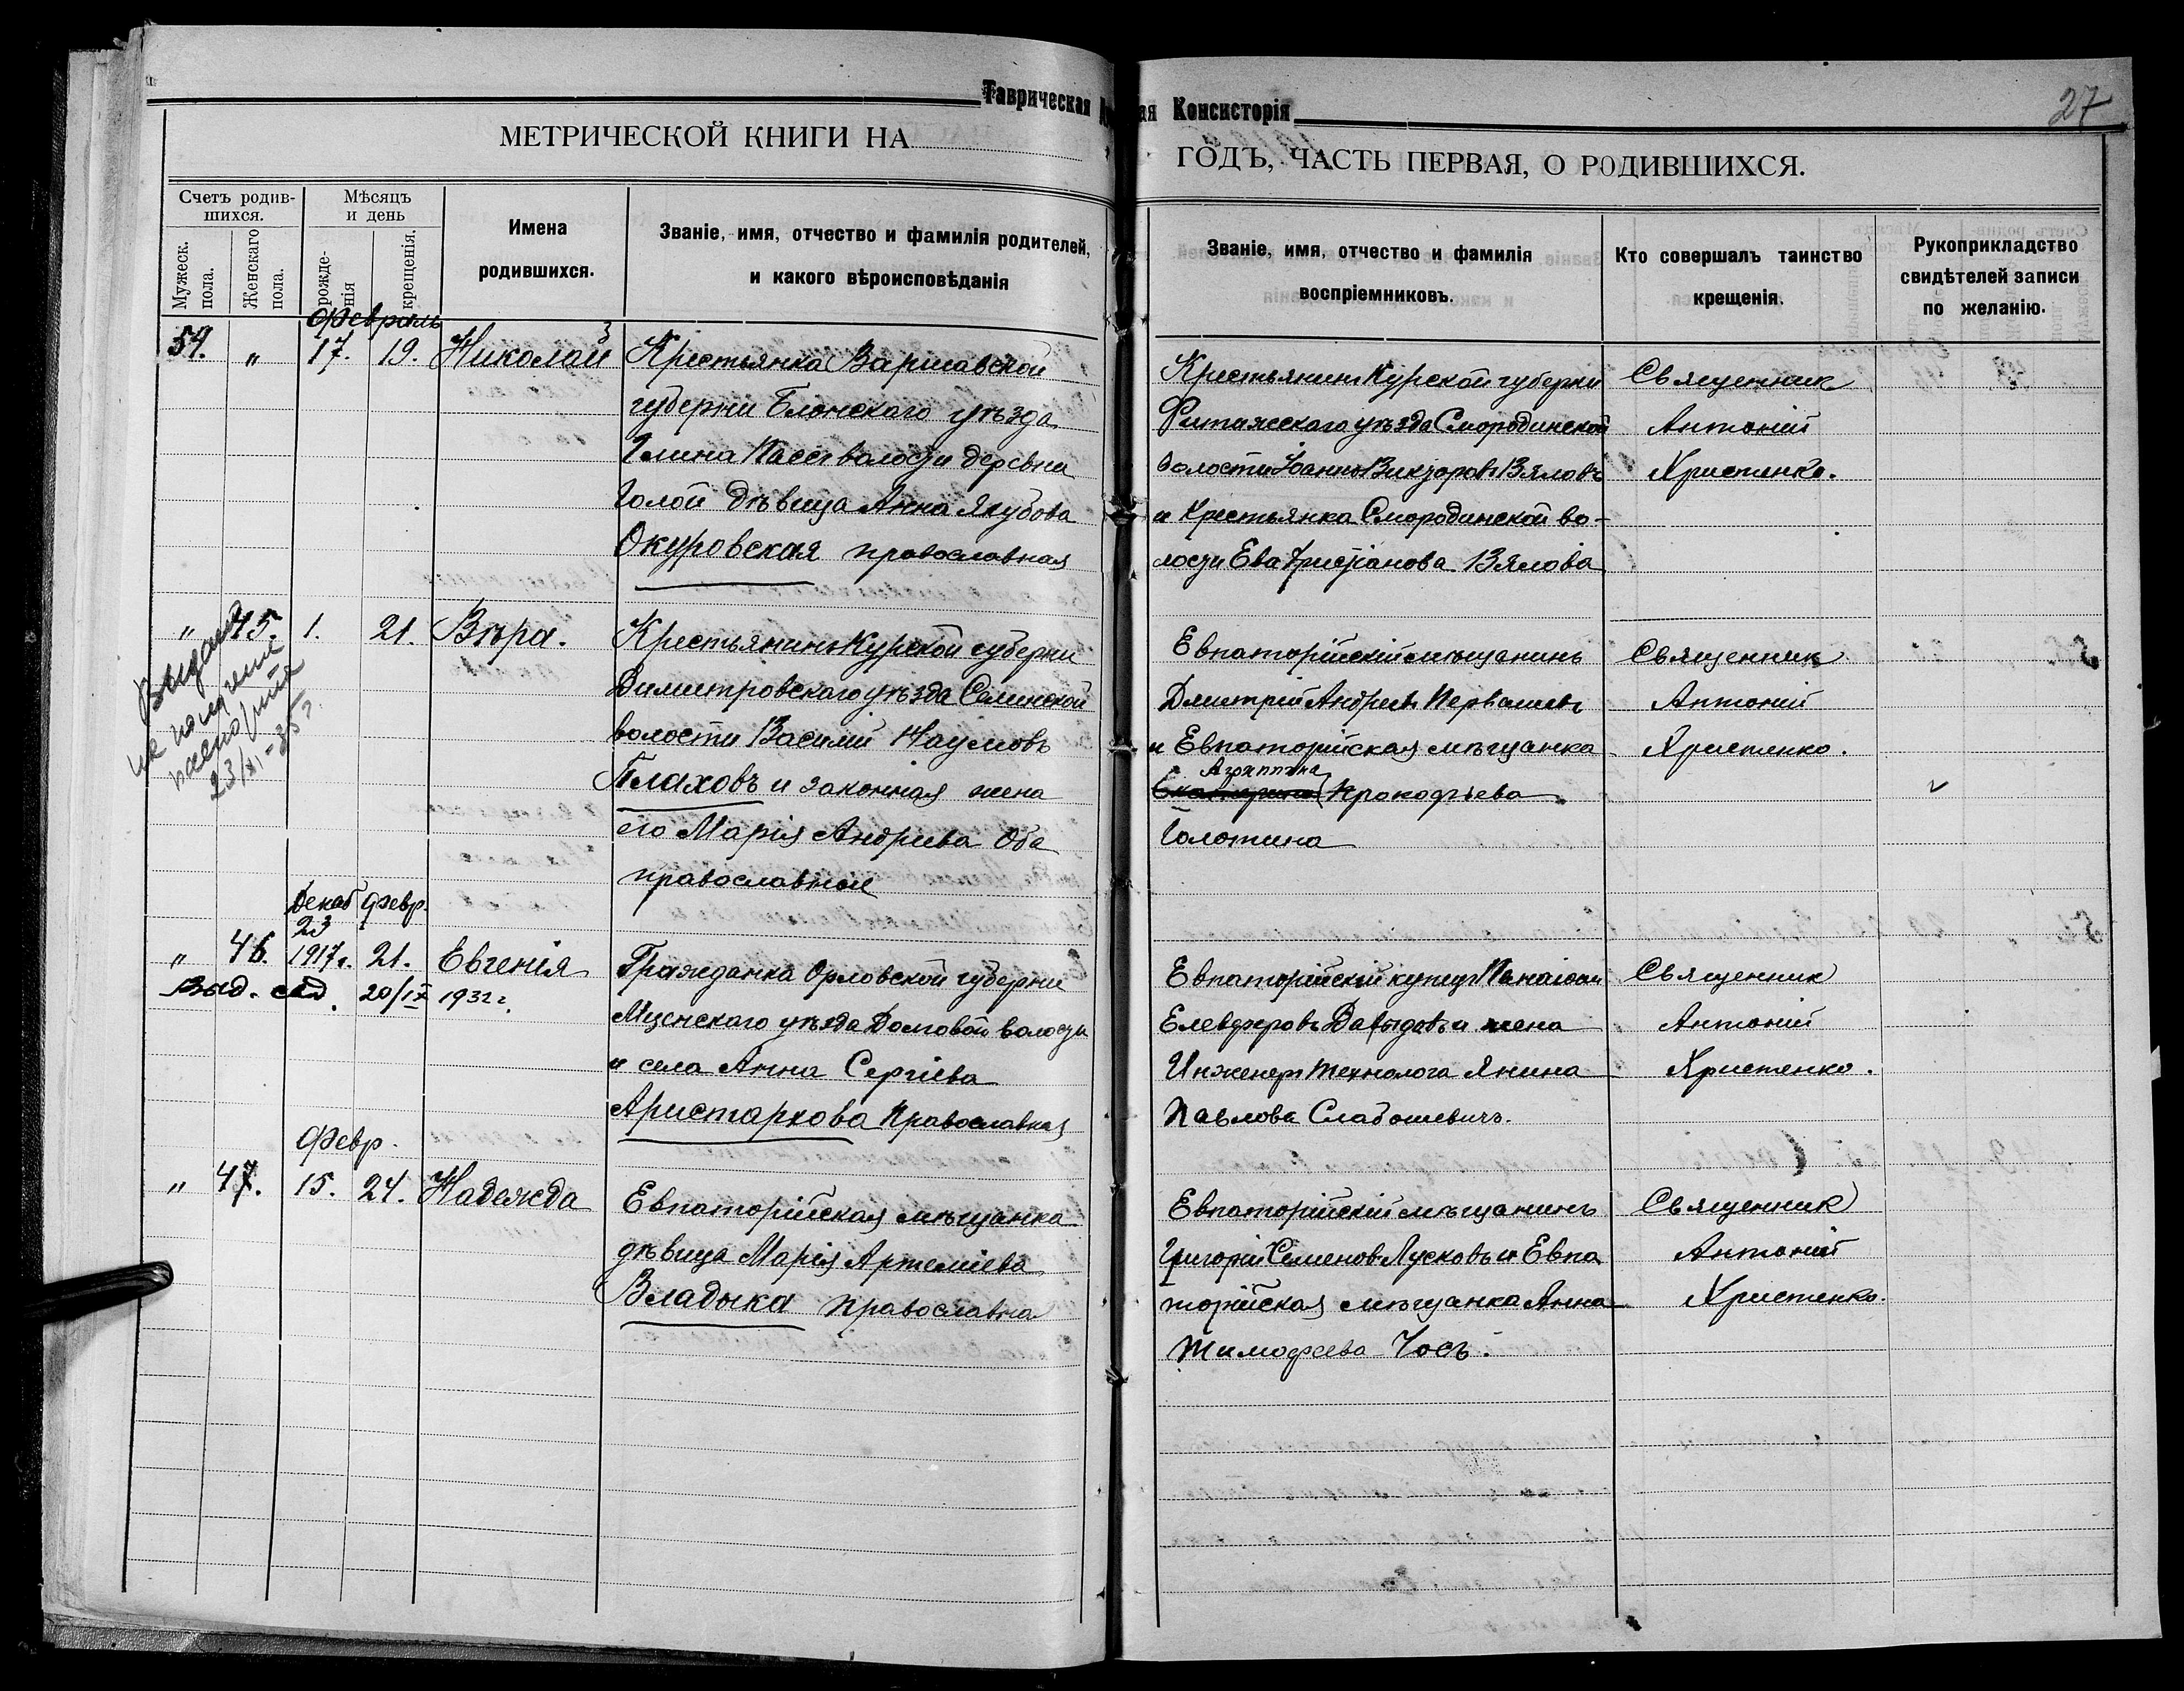 Таврическая
ая Консисторія
27
МЕТРИЧЕСКОЙ КНИГИ НА
ГОДЪ, ЧАСТЬ ПЕРВАЯ, О РОДИВШИХСЯ.
Счетъ родив-
шихся.
Мужеск.
пола.
Женскаго
пола.
Мѣсяцъ
и день
рожде-
нія
крещенія.
Имена
родившихся.
Званіе, имя, отчество и фамилія родителей,
и какого вѣроисповѣданія
Званіе, имя, отчество и фамилія
воспріемниковъ.
Кто совершалъ таинство
крещенія.
Рукоприкладство
свидѣтелей записи
по желанію.
Февраль
59. " 17. 19. Николай
Крестьянка Варшавской
губерніи Блонскаго уѣзда
волости деревни
Голой дѣвица Анна Якубова
Окуровская православная
Крестьянинъ Курской губерніи
уѣзда Смородинской
волости Іоаннъ Викторовъ Вяловъ
и Крестьянка Смородинской во-
лости Ева Вялова
Священник
Антоній
Христенко.
" 45. 1. 21. Вѣра.
Выдано
на получение
паспорта
23/XI-35 г.
Крестьянинъ Курской губерніи
Димитровскаго уѣзда Селинской
волости Василій Наумовъ
Плаховъ и законная жена
его Марія Андреева Оба
православные
Евпаторійскій мѣщанинъ
Дмитрій Андреевъ
и Евпаторійская мѣщанка
Агриппина
Екатерина Прокофьева
Голотина
Священник
Антоній
Христенко.
Декаб Февр.
23
" 46. 1917г. 21. Евгенія
Выд. 20/IX 1932г.
Гражданка Орловской губерніи
Мценскаго уѣзда Домовой волости
и села Анна Сергіева
Аристархова Православная
Евпаторійскій купецъ Панаіотъ
Елевферовъ Давыдовъ и жена
Инженеръ технолога Янина
Павлова Слабошевичъ.
Священник
Антоній
Христенко.
Февр.
" 47. 15. 24. Надежда
Евпаторійская мѣщанка
дѣвица Марія Артеміева
Владыка православна
Евпаторійскій мѣщанинъ
Григорій Семеновъ Лусковъ и Евпа
торійская мѣщанка Анна
Тимофеева Чосъ.
Священник
Антоній
Христенко.